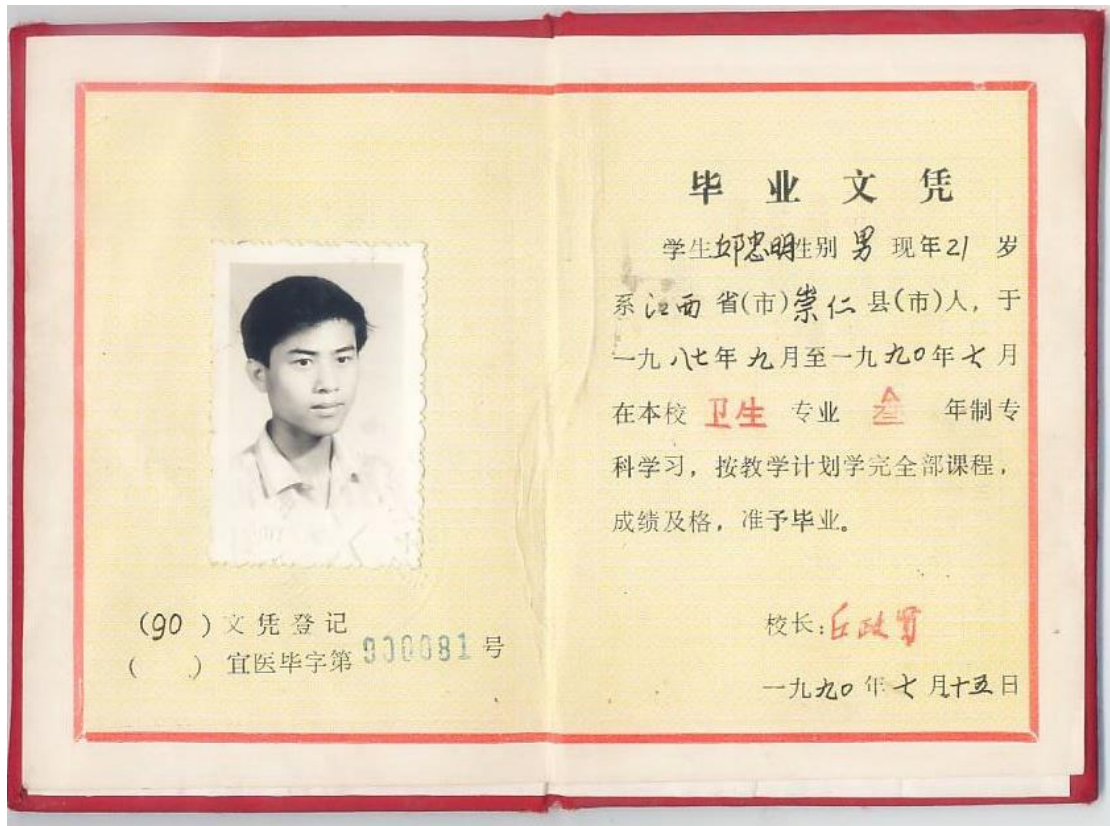 (90 )文凭登记
( )宜医毕字第900081号
毕业文凭
学生邱忠明性别 男 现年21 岁
系江西省(市)崇仁县(市)人,于
一九八七年九月至一九九0年七月
在本校 卫生 专业 叁 年制专
科学习,按教学计划学完全部课程,
成绩及格,准予毕业。
校长:丘政贤
一九九0年七月十五日